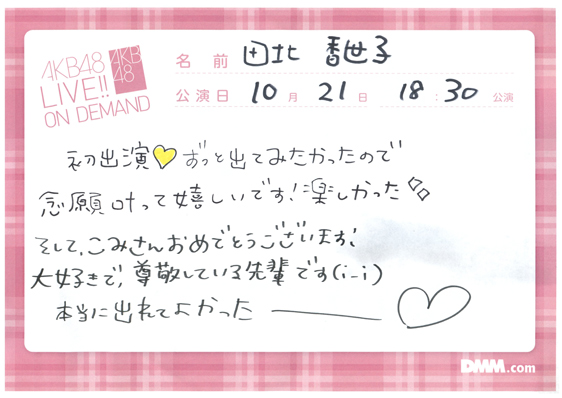 AKB48
LIVE!!
ON DEMAND
AKB
48
名前 田北香世子
公演日 10月21日 18:30公演
初出演♡ずっと出てみたかったので
念願叶って嬉しいです!楽しかった
そして、こみさんおめでとうございます!
大好きで、尊敬している先輩です(i_i)
本当に出れてよかった——♡
DMM.com